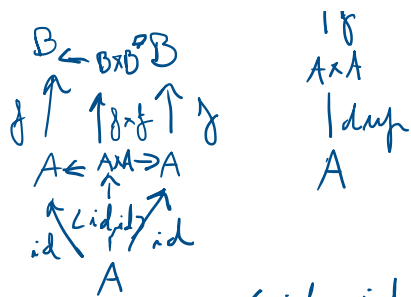 B ← B×B → B
f f×f f
A ← A×A → A
id <id,id> id
A
A×A
dup
A